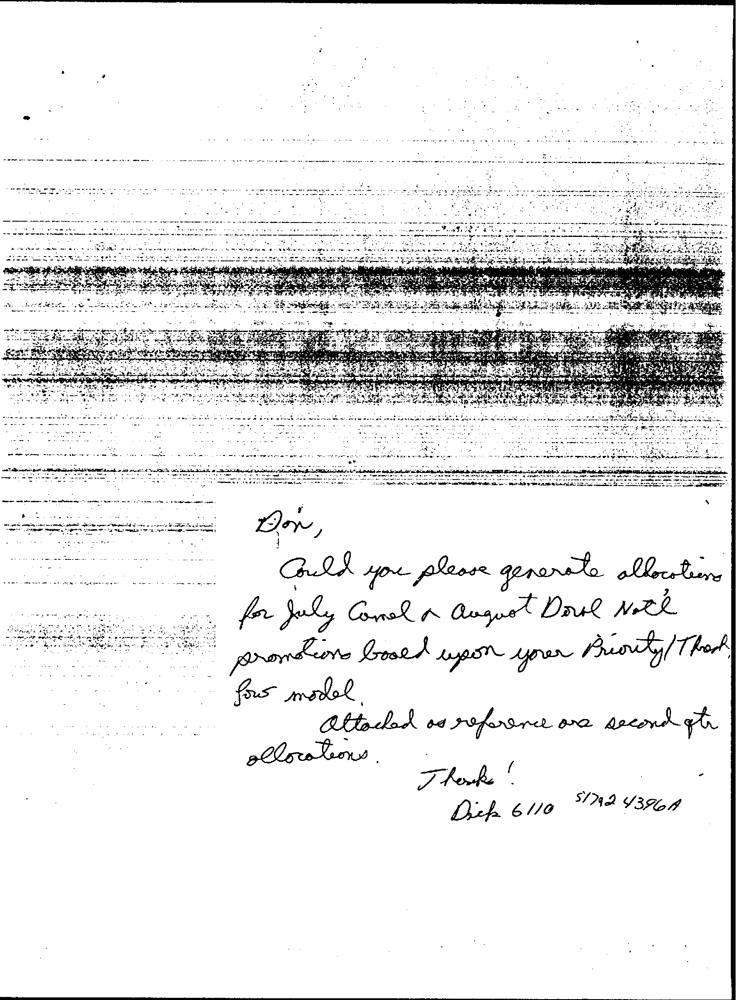 Don,
Could you please generate allocations
for July Camel & August Doral Nat'l
promotions based upon your Priority/
model.
Attached as reference are second qtr
allocations.
Thanks!
Dick 6110 51792 4396A